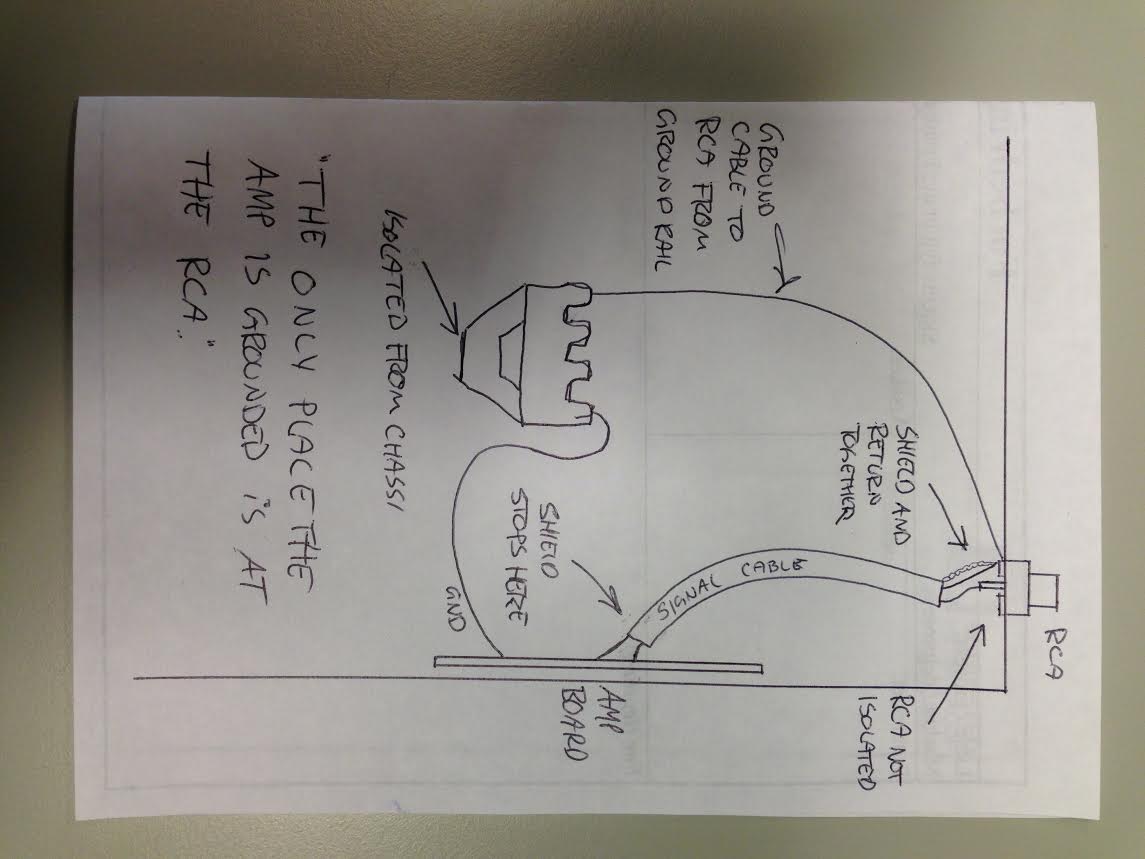 RCA
RCA NOT
ISOLATED
SHIELD AND
RETURN
TOGETHER
GROUND
CABLE TO
RCA FROM
GROUND RAIL
SIGNAL CABLE
AMP
BOARD
SHIELD
STOPS HERE
GND
ISOLATED FROM CHASSI
"THE ONLY PLACE THE
AMP IS GROUNDED iS AT
THE RCA."